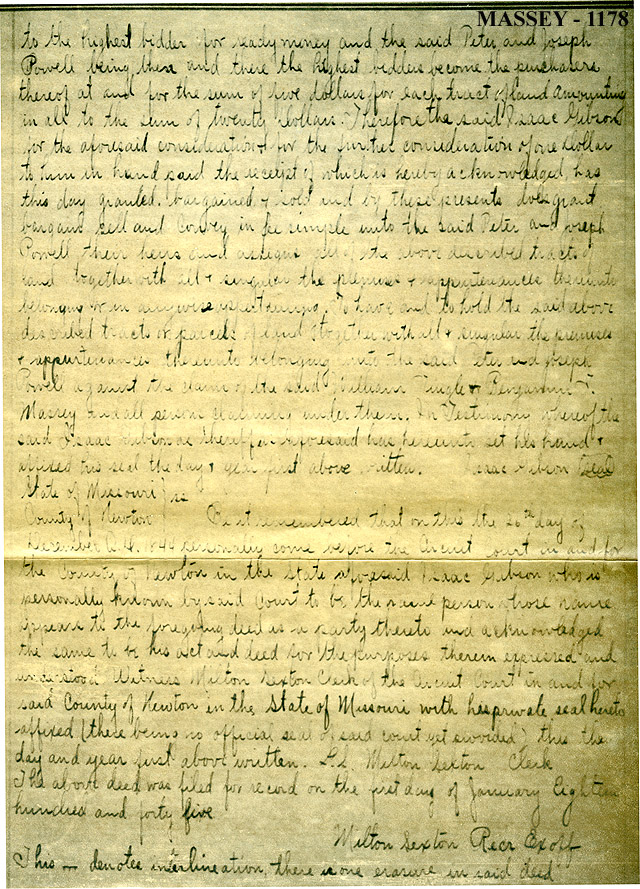 MASSEY - 1178
to the highest bidder for ready money and the said Peter and Joseph
Powell being then and there the highest bidders become the purchasers
thereof at and for the sum of five dollars for each tract of land amounting
in all to the sum of twenty dollars. Therefore the said Isaac Gibson
for the aforesaid consideration & for the further consideration of one dollar
to him in hand said the receipt of which is hereby acknowledged, has
this day granted, bargained & sold and by these presents does grant
bargain sell and convey in fee simple unto the said Peter and Joseph
Powell their heirs and assigns all of the above described tracts of
land together with all & singular the premises & appurtenances thereunto
belonging or in anywise appertaining. To have and to hold the said above
described tracts or parcels of land together with all & singular the premises
& appurtenances thereunto belonging unto the said Peter and Joseph
Powell against the claim of the said William Tingle & Benjamin F.
Massey and all persons claiming under them. In Testimony whereof the
said Isaac Gibson as Sheriff as aforesaid has hereunto set his hand &
affixed his seal the day & year first above written. Isaac Gibson Seal
State of Missouri } ss
County of Newton Be it remembered that on this the 26th day of
December A.D. 1844 personally come before the Circuit Court in and for
the County of Newton in the State aforesaid Isaac Gibson who is
personally known by said Court to be the same person whose name
appears to the foregoing deed as a party thereto and acknowledged
the same to be his act and deed for the purposes therein expressed and
understood Witness Milton Sexton Clerk of the Circuit Court in and for
said County of Newton in the State of Missouri with his private seal hereto
affixed (there being no official seal of said court yet provided) this the
day and year first above written. L.S. Milton Sexton Clerk
The above deed was filed for record on the first day of January Eighteen
hundred and forty five
Milton Sexton Recr Exoff
This — denotes interlineation, there is one erasure in said deed